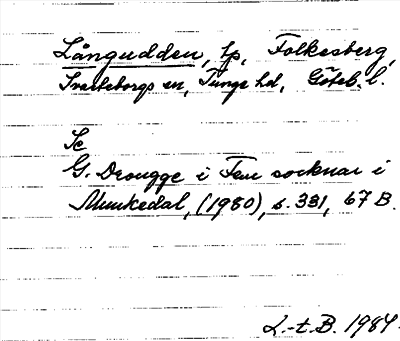 Långudden, lp, Folkesberg,
Svarteborgs sn, Tunge hd, Göteb. l.
Se
G. Drougge i Fem socknar i
Munkedal, (1980), s. 331, 67 B.
L.-t. B. 1984.